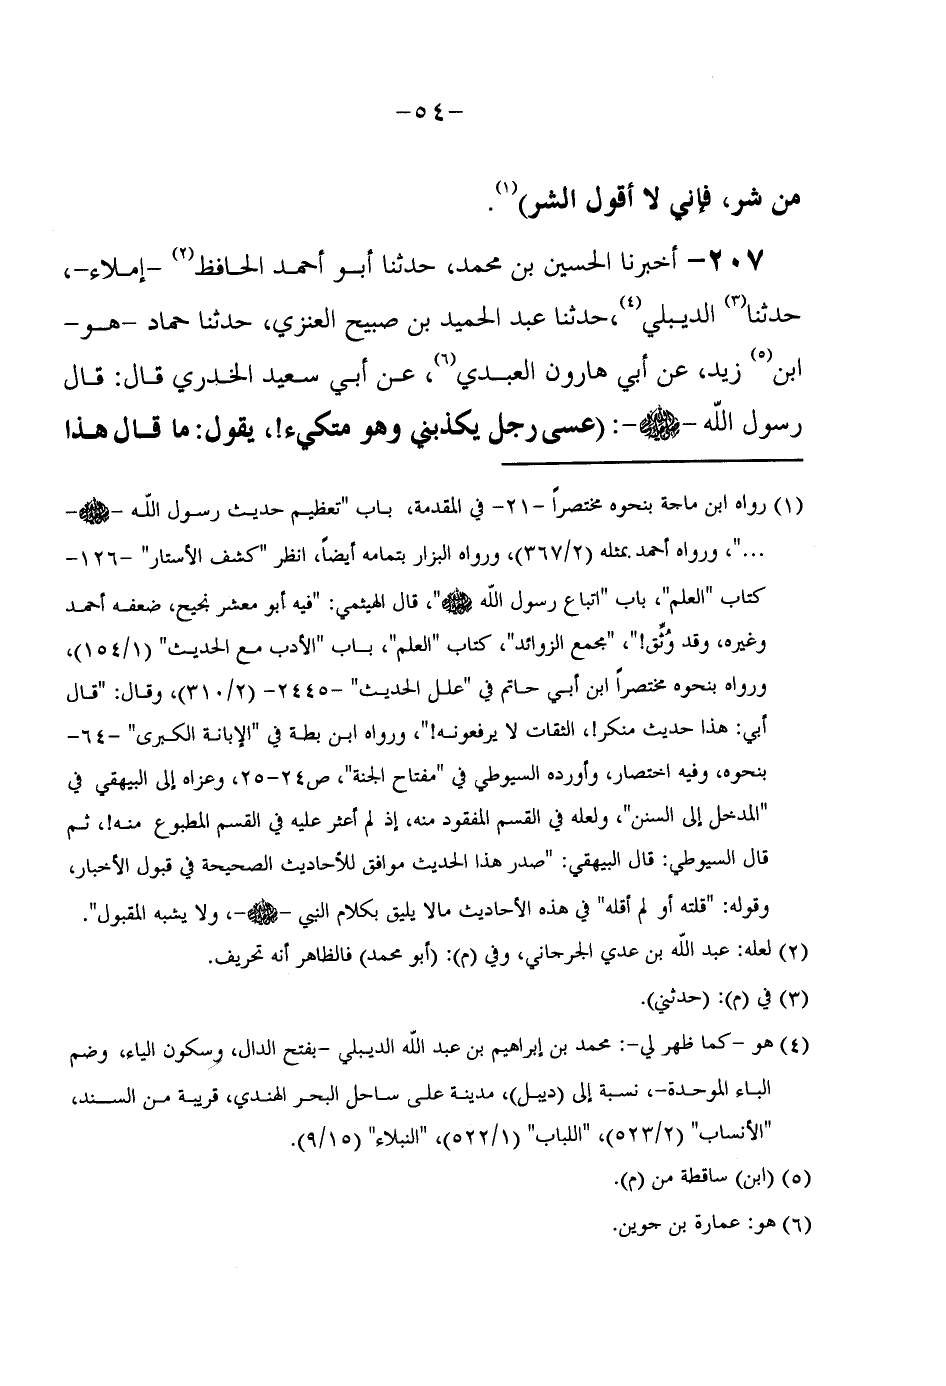 -٥٤-
من شر، فإني لا أقول الشر)(١).
٢٠٧- أخبرنا الحسين بن محمد، حدثنا أبو أحمد الحافظ(٢) -إملاء-،
حدثنا(٣) الديبلي(٤)،حدثنا عبد الحميد بن صبيح العنزي، حدثنا حماد -هو-
ابن(٥) زيد، عن أبي هارون العبدي(٦)، عن أبي سعيد الخدري قال: قال
رسول الله -ﷺ-: (عسى رجل يكذبني وهو متكيء!، يقول: ما قال هذا
(١) رواه ابن ماجة بنحوه مختصراً -٢١- في المقدمة، باب "تعظيم حديث رسول الله -ﷺ-
..."، ورواه أحمد بمثله (٣٦٧/٢)، ورواه البزار بتمامه أيضاً، انظر "كشف الأستار" -١٢٦-
كتاب "العلم"، باب "اتباع رسول الله ﷺ"، قال الهيثمي: "فيه أبو معشر نجيح، ضعفه أحمد
وغيره، وقد وُثِّق!"، "مجمع الزوائد"، كتاب "العلم"، باب "الأدب مع الحديث" (١٥٤/١)،
ورواه بنحوه مختصراً ابن أبي حاتم في "علل الحديث" -٢٤٤٥- (٣١٠/٢)، وقال: "قال
أبي: هذا حديث منكر!، الثقات لا يرفعونه!"، ورواه ابن بطة في "الإبانة الكبرى" -٦٤-
بنحوه، وفيه اختصار، وأورده السيوطي في "مفتاح الجنة"، ص٢٤-٢٥، وعزاه إلى البيهقي في
"المدخل إلى السنن"، ولعله في القسم المفقود منه، إذ لم أعثر عليه في القسم المطبوع منه!، ثم
قال السيوطي: قال البيهقي: "صدر هذا الحديث موافق للأحاديث الصحيحة في قبول الأخبار،
وقوله: "قلته أو لم أقله" في هذه الأحاديث مالا يليق بكلام النبي -ﷺ-، ولا يشبه المقبول".
(٢) لعله: عبد الله بن عدي الجرحاني، وفي (م): (أبو محمد) فالظاهر أنه تحريف.
(٣) في (م): (حدثني).
(٤) هو -كما ظهر لي-: محمد بن إبراهيم بن عبد الله الديبلي -بفتح الدال، وسكون الياء، وضم
الباء الموحدة-، نسبة إلى (ديبل)، مدينة على ساحل البحر الهندي، قريبة من السند،
"الأنساب" (٥٢٣/٢)، "اللباب" (٥٢٢/١)، "النبلاء" (٩/١٥).
(٥) (ابن) ساقطة من (م).
(٦) هو: عمارة بن حوين.